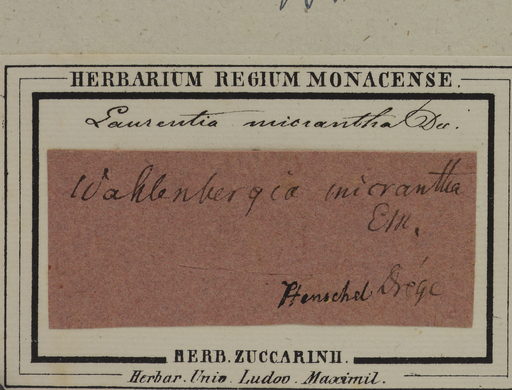 HERBARIUM REGIUM MONACENSE.
Laurentia micrantha Dec.
Wahlenbergia micrantha
EM.
Henschel Drége
HERB. ZUCCARINII.
Herbar. Univ. Ludov. Maximil.